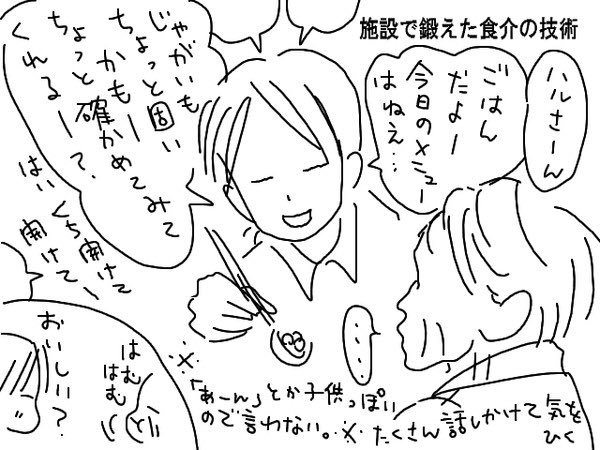 施設で鍛えた食介の技術
ハルさーん
ごはん
だよー
今日のメニュー
はねえ…
じゃがいも
ちょっと固い
かもー
ちょっと確かめてみて
くれるー?
はい くち開けて
開けてー
・・・・
おいしい?
はむ
はむ
※「あーん」とか子供っぽい
ので言わない。※たくさん話しかけて気を
ひく